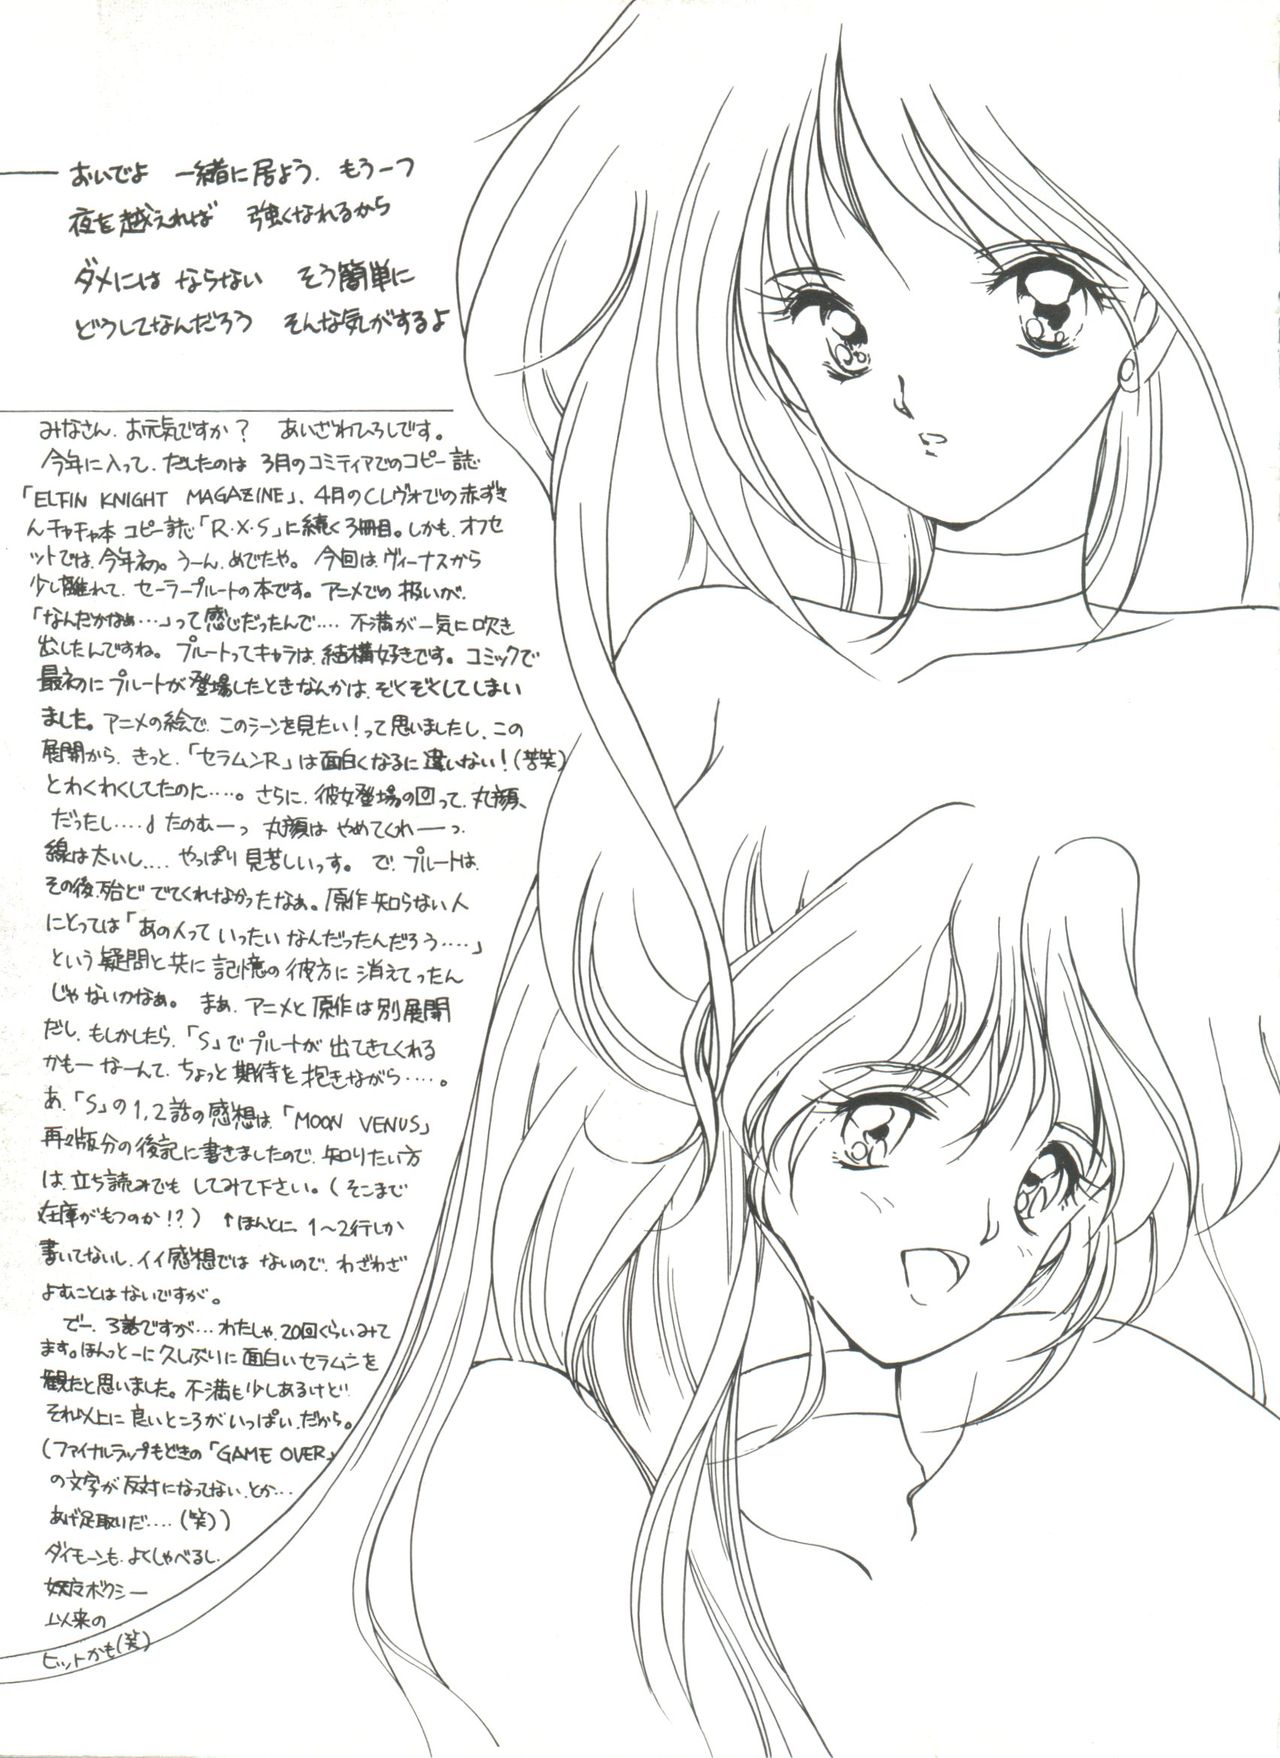 おいでよ 一緒に居よう、もう一つ
夜を越えれば 強くなれるから
ダメには ならない そう簡単に
どうしてなんだろう そんな気がするよ
みなさん、お元気ですか？ あいざわひろしです。
今年に入って、だしたのは 3月のコミティアでのコピー誌
「ELFIN KNIGHT MAGAZINE」、4月のCレヴォでの赤ずき
んチャチャ本 コピー誌「R・X・S」に続く3冊目。しかも、オフセ
ットでは、今年初。うーん、めでたや。今回は、ヴィーナスから
少し離れて、セーラープルートの本です。アニメでの扱いが、
「なんだかなぁ…」って感じだったんで…、不満が一気に吹き
出したんですね。プルートってキャラは、結構好きです。コミックで
最初にプルートが登場したときなんかは、ぞくぞくしてしまい
ました。アニメの絵で、このシーンを見たい！って思いましたし、この
展開から、きっと、「セラムンR」は面白くなるに違いない！（苦笑）
とわくわくしてたのに…。さらに、彼女登場の回って、丸顔、
だったし…♩たのむーっ 丸顔は やめてくれーっ、
線は太いし…、やっぱり見苦しいっす。で、プルートは、
その後、殆ど でてくれなかったなぁ。原作知らない人
にとっては「あの人って いったい なんだったんだろう…」
という疑問と共に 記憶の彼方に 消えてったん
じゃないかなぁ。まぁ、アニメと原作は別展開
だし、もしかしたら、「S」でプルートが 出てきてくれる
かもー なーんて、ちょっと期待を抱きながら…。
あ、「S」の1,2話の感想は、「MOON VENUS」
再々版分の後記に書きましたので、知りたい方
は、立ち読みでも してみて下さい。（そこまで
在庫がもつのか!?）↑ほんとに、1〜2行しか
書いてないし、イイ感想では ないので、わざわざ
よむことはないですが。
でー、3話ですが…わたしゃ、20回くらいみて
ます。ほんっとーに久しぶりに面白いセラムンを
観たと思いました。不満も少しあるけど、
それ以上に良いところがいっぱい、だから。
（ファイナルラップもどきの「GAME OVER」
の文字が反対になってない、とか…
あげ足取りだ…（笑））
ダイモーンも、よくしゃべるし、
妖魔ボクシー
以来の
ヒットかも（笑）